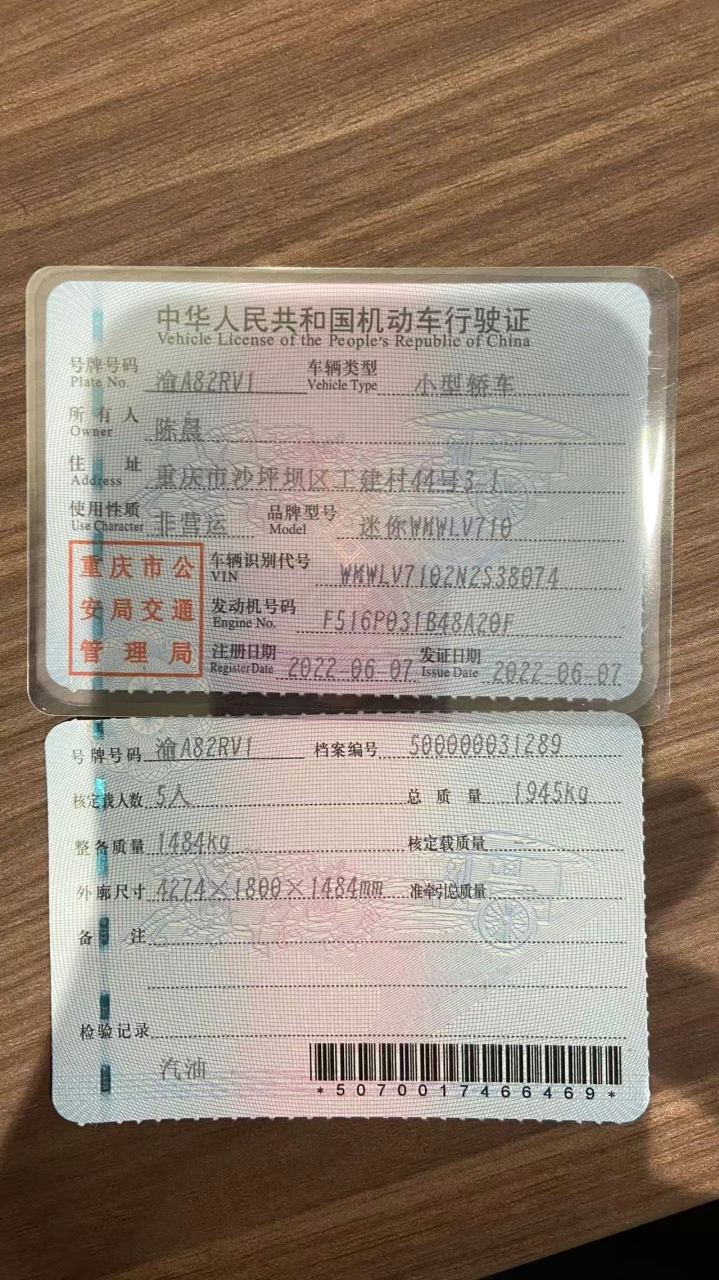 中华人民共和国机动车行驶证
Vehicle License of the People's Republic of China
号牌号码 Plate No. 渝A82RV1 车辆类型 Vehicle Type 小型轿车
所有人 Owner 陈晨
住址 Address 重庆市沙坪坝区工建村44号3-1
使用性质 Use Character 非营运 品牌型号 Model 迷你WMWLV710
重庆市公安局交通管理局
车辆识别代号 VIN WMWLV7102N2S38074
发动机号码 Engine No. F516P031B48A20F
注册日期 Register Date 2022-06-07 发证日期 Issue Date 2022-06-07
号牌号码 渝A82RV1 档案编号 500000031289
核定载人数 5人 总质量 1945kg
整备质量 1484kg 核定载质量 --
外廓尺寸 4274×1800×1484mm 准牵引总质量
备注
检验记录
汽油
*5070017466469*